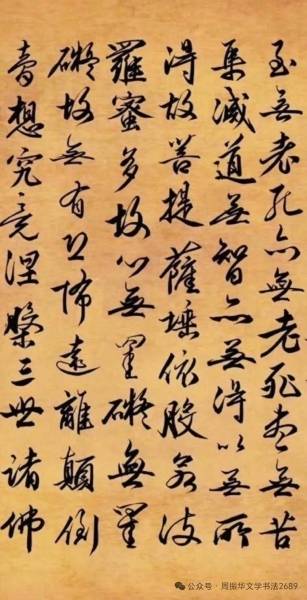 至無老死亦無老死盡無苦
集滅道無智亦無得以無所
得故菩提薩埵依般若波
羅蜜多故心無罣礙無罣
礙故無有恐怖遠離顛倒
夢想究竟涅槃三世諸佛
公众号 · 周振华文学书法2689